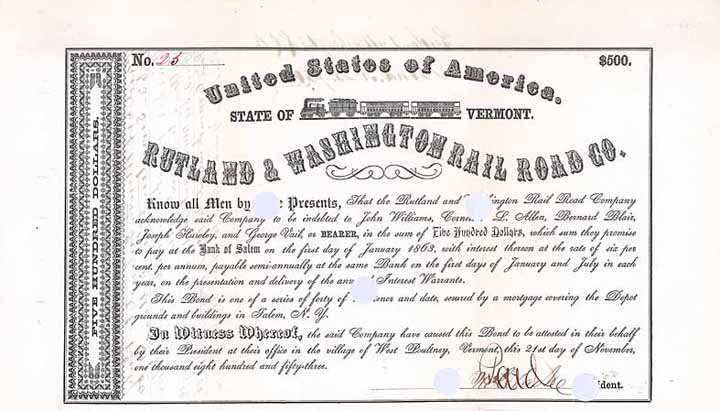 No. 25
$500.
United States of America.
STATE OF VERMONT.
RUTLAND & WASHINGTON RAIL ROAD CO.
FIVE HUNDRED DOLLARS.
Know all Men by Presents, That the Rutland and ington Rail Road Company
acknowledge said Company to be indebted to John Williams, Corne L. Allen, Bernard Blair,
Joseph Hawley, and George Vail, or BEARER, in the sum of Five Hundred Dollars, which sum they promise
to pay at the Bank of Salem on the first day of January 1863, with interest thereon at the rate of six per
cent. per annum, payable semi-annually at the same Bank on the first days of January and July in each
year, on the presentation and delivery of the an Interest Warrants.
This Bond is one of a series of forty of enor and date, secured by a mortgage covering the Depot
grounds and buildings in Salem, N. Y.
In Witness Whereof, the said Company have caused this Bond to be attested in their behalf
by their President at their office in the village of West Poultney, Vermont, this 21st day of November,
one thousand eight hundred and fifty-three.
ident.